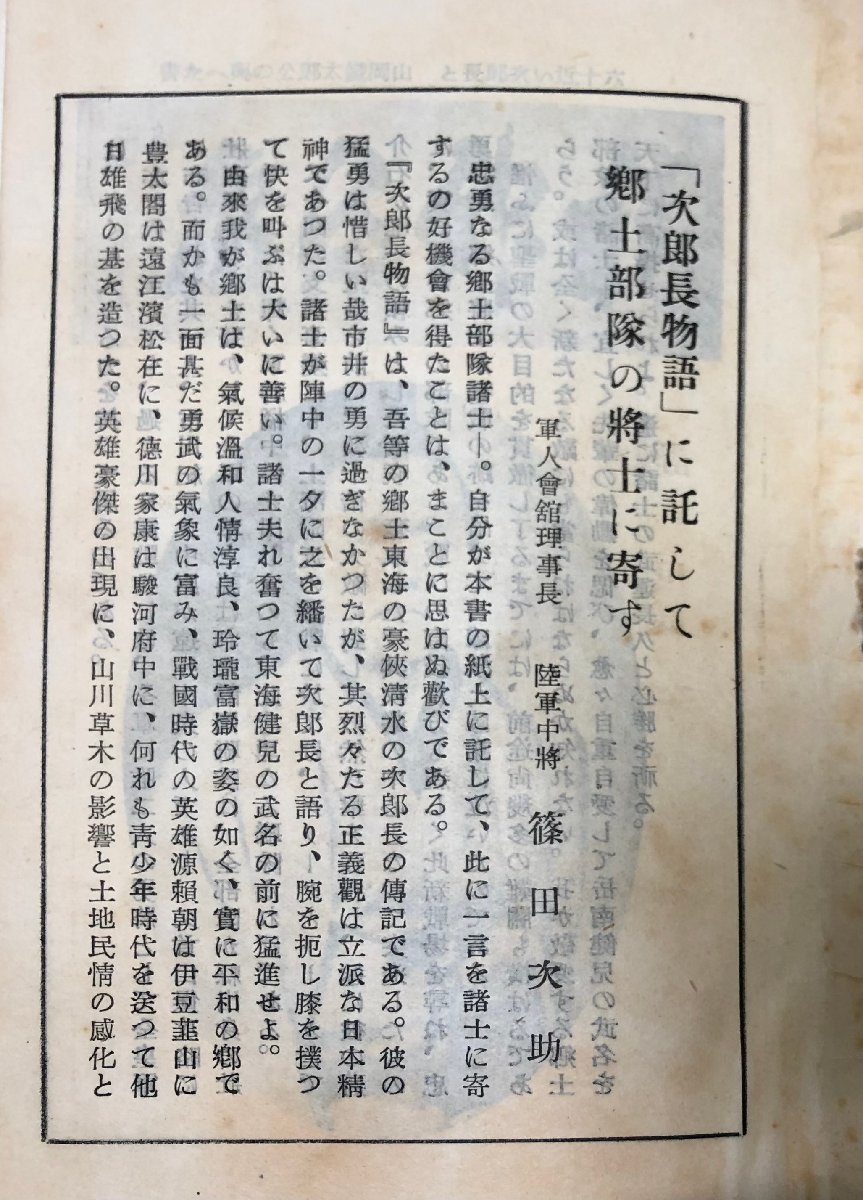 「次郎長物語」に託して
鄕土部隊の將士に寄す
軍人會舘理事長　陸軍中將　篠田次助
忠勇なる鄕土部隊諸士―。自分が本書の紙上に託して、此に一言を諸士に寄
するの好機會を得たことは、まことに思はぬ歡びである。
『次郎長物語』は、吾等の鄕土東海の豪俠淸水の次郎長の傳記である。彼の
猛勇は惜しい哉市井の勇に過ぎなかつたが、其烈々たる正義觀は立派な日本精
神であつた。諸士が陣中の一夕に之を繙いて次郎長と語り、腕を扼し膝を撲つ
て快を叫ぶは大いに善い。諸士夫れ奮つて東海健兒の武名の前に猛進せよ。
由來我が鄕土は、氣候溫和人情淳良、玲瓏富嶽の姿の如く、實に平和の鄕で
ある。而かも一面甚だ勇武の氣象に富み、戰國時代の英雄源賴朝は伊豆韮山に
豊太閤は遠江濱松在に、德川家康は駿河府中に、何れも靑少年時代を送つて他
日雄飛の基を造つた。英雄豪傑の出現に、山川草木の影響と土地民情の感化と